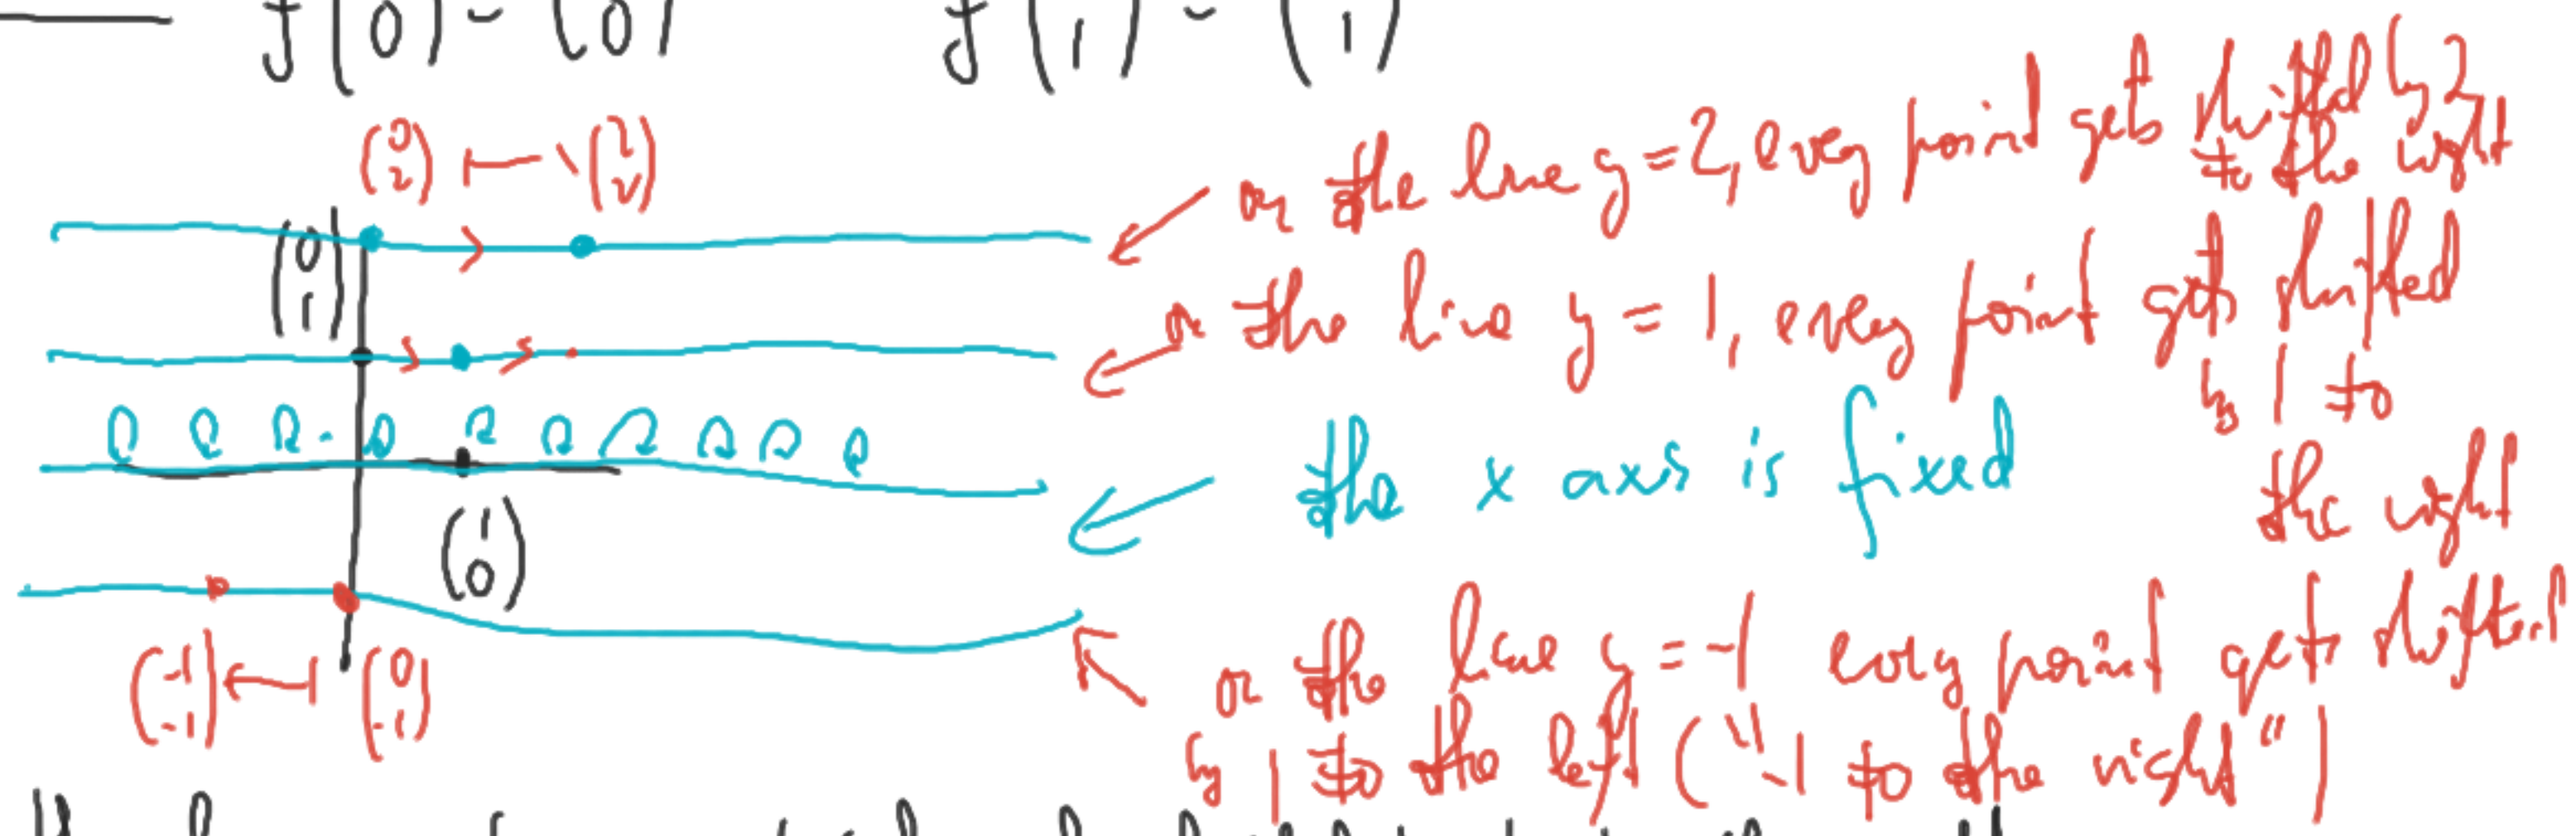 f(0) = (0) f(1) = (1)
(0 2) ↦ (2 2)
on the line y=2, every point gets shifted by 2
to the right
(0 1)
on the line y = 1, every point gets shifted
by 1 to
the right
the x axis is fixed
(1 0)
on the line y = -1 every point gets shifted
by 1 to the left ("-1 to the right")
(-1 -1) ↤ (0 -1)